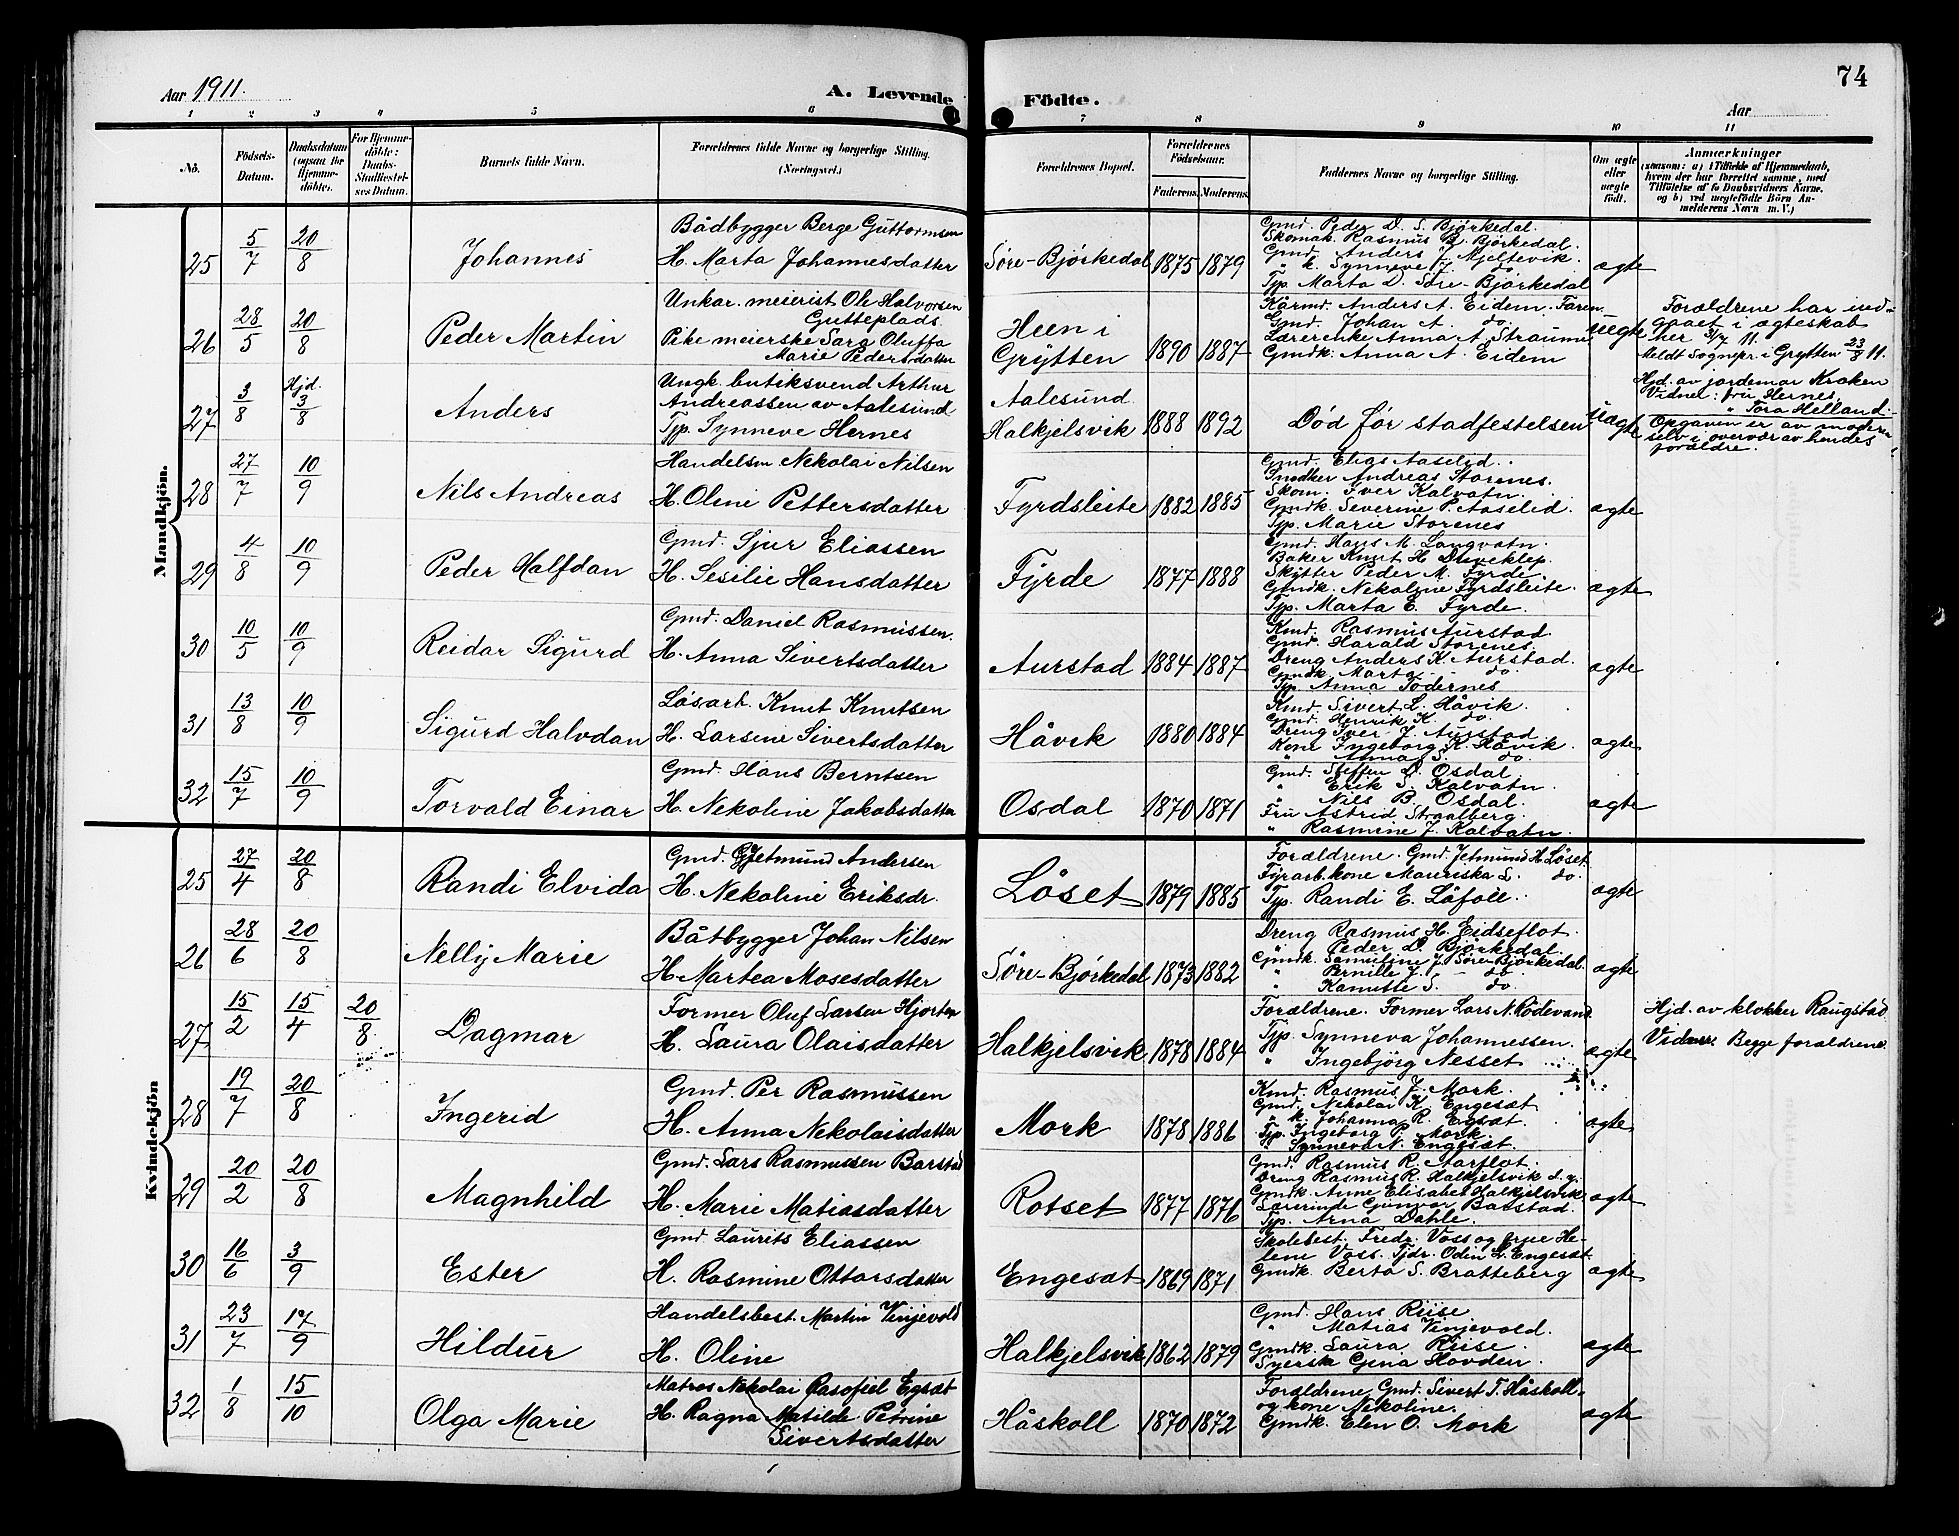 74
Aar 1911.
A. Levende Födte.
Aar
1 2 3 4 5 6 7 8 9 10 11
No.
Födsels-Datum.
Daabsdatum (ogsaa for Hjemme-döbte).
For Hjemme-döbte: Daabs-Stadfæstel-ses Datum.
Barnets fulde Navn.
Forældrenes fulde Navne og borgerlige Stilling. (Næringsvei.)
Forældrenes Bopæl.
Forældrenes Födselsaar.
Faderens. Moderens.
Faddernes Navne og borgerlige Stilling.
Om ægte eller uægte født.
Anmærkninger
(saasom: a) i Tilfælde af Hjemmedaab, hvem der har forrettet samme, med Tilföielse af to Daabsvidners Navne, og b) ved uegtefödte Börn Anmelderens Navn m. V.)
Mandkjön.
25 5/7 20/8 Johannes
Bådbygger Berge Guttormsen
H. Marta Johannesdatter
Søre-Bjørkedal 1875 1879
Gmd. Peder D. S. Bjørkedal.
Skomak. Rasmus B. Bjørkedal.
Gmd. Anders J. Mjeltevik.
" k. Synneve J. do
Tjp. Marta D. Søre-Bjørkedal
ægte
26 28/5 20/8 Peder Martin
Unkar. meierist Ole Halvorsen
Gutteplads.
Pike meierske Sara Oluffa
Marie Pedersdatter
Heen i
Grytten 1890 1887
Kårmd. Anders A. Eidem. Faren
Gmd. Johan A. do.
Lærerenke Anna A. Straume
Gmdk. Anna A. Eidem
uegte
Forældrene har ind-
gaaet i ægteskab
her 3/7 11.
Meldt Sognepr. i Grytten 23/8 11.
27 3/8 Hjd. 3/8 Anders
Ungk. butiksvend Arthur
Andreassen av Aalesund
Tjp. Synneve Hernes
Aalesund
Halkjelsvik 1888 1892
Død før stadfestelsen
uegte
Hjd. av jordemor Kraken
Vidner: fru Hernes,
" Tora Helland.
Opgaven er av moderen
selv i overvær av hendes
foreldre.
28 27/7 10/9 Nils Andreas
Handelsm Nekolai Nilsen
H. Oline Pettersdatter
Fyrdsleite 1882 1885
Gmd. Elias Aaselid.
Snedker Andreas Storenes.
Skom. Iver Kalvatn.
Gmdk. Severine P. Aaselid.
Tjp. Marie Storenes
ægte
29 4/8 10/9 Peder Halfdan
Gmd. Sjur Eliassen
H. Sesilie Hansdatter
Fyrde 1877 1888
Gmd. Hans M. Langvatn.
Baker Knut H. Driveklep.
Skytter Peder M. Fyrde
Gmdk. Nekoline Fyrdsleite.
Tjp. Marta E. Fyrde.
ægte
30 10/5 10/9 Reidar Sigurd
Gmd. Daniel Rasmussen.
H. Anna Sivertsdatter
Aurstad 1884 1887
Kmd. Rasmus Aurstad.
Gmd. Harald Storenes.
Dreng Anders K. Aurstad.
Gmdk. Marta do.
Tjp. Anna Södernes
ægte
31 13/8 10/9 Sigurd Halvdan
Løsarb. Knut Knutsen
H. Larsine Sivertsdatter
Håvik 1880 1884
Kmd. Sivert L. Håvik.
Gmd. Henrik K. do.
Dreng Iver J. Aurstad.
Kone Ingeborg K. Håvik.
" Anna S. do.
ægte
32 15/7 10/9 Torvald Einar
Gmd. Hans Berntsen
H. Nekoline Jakobsdatter
Osdal 1870 1871
Gmd. Steffen D. Osdal
" Erik S. Kalvatn.
" Nils B. Osdal.
Fru Astrid Straalberg.
" Rasmine J. Kalvatn.
ægte
Kvindekjön
25 27/4 20/8 Randi Elvida
Gmd. Gjetmund Andersen
H. Nekoline Eriksdr.
Løset 1879 1885
Forældrene. Gmd. Jetmund H. Løset.
Fyrarb.kone Mauriska L. do.
Tjp. Randi E. Låfoll.
ægte
26 28/6 20/8 Nelly Marie
Båtbygger Johan Nilsen
H. Martea Mosesdatter
Søre-Bjørkedal 1873 1882
Dreng Rasmus H. Eidseflot.
" Peder D. Bjørkedal.
Gmdk. Samuline J. Søre-Bjørkedal.
" Pernille J. – do.
" Kamille S. do.
ægte
27 15/2 15/4 20/8 Dagmar
Former Oluf Larsen Hjorten
H. Laura Olaisdatter
Halkjelsvik 1878 1884
Forældrene. Former Lars N. Rödevand.
Tjp. Synneva Johannessen.
" Ingebjörg Nesset
ægte
Hjd. av klokker Raugstad.
Vidner. Begge forældrene.
28 19/7 20/8 Ingerid
Gmd. Per Rasmussen
H. Anna Nekolaisdatter
Mork 1878 1886
Kmd. Rasmus J. Mork.
Gmd. Nekolai K. Engesæt
" k. Johanna R. Egsæt.
Tjp. Ingeborg P. Mork
" Synneva N. Engesæt.
ægte
29 20/2 20/8 Magnhild
Gmd. Lars Rasmussen Barstad
H. Marie Matiasdatter
Rotset 1877 1876
Gmd. Rasmus R. Aarflot.
Dreng Rasmus R. Halkjelsvik d. y.
Gmdk. Anne Elisabet Halkjelsvik
Lærerinde Gunvor Barstad.
Tjp. Arna Dahle.
ægte
30 16/6 3/9 Ester
Gmd. Laurits Eliassen
H. Rasmine Ottarsdatter
Engesæt 1869 1871
Skolebest. Fredr. Voss og frue He-
lene Voss. Tjdr. Odin L. Engesæt.
Gmdk. Berta S. Bratteberg
ægte
31 23/7 17/9 Hildur
Handelsbest. Martin Vinjevold
H. Oline
Halkjelsvik 1862 1879
Gmd. Hans Riise
" Matias Vinjevold.
Gmdk. Laura Riise.
Syerska Gjena Hovden.
ægte
32 1/8 15/10 Olga Marie
Matros Nekolai Rasofiel Egsæt
H. Ragna Matilde Petrine
Sivertsdatter
Håskoll 1870 1872
Forældrene, Gmd. Sivert T. Håskoll.
og kone Nekoline.
Gmdk. Elen O. Mork
ægte